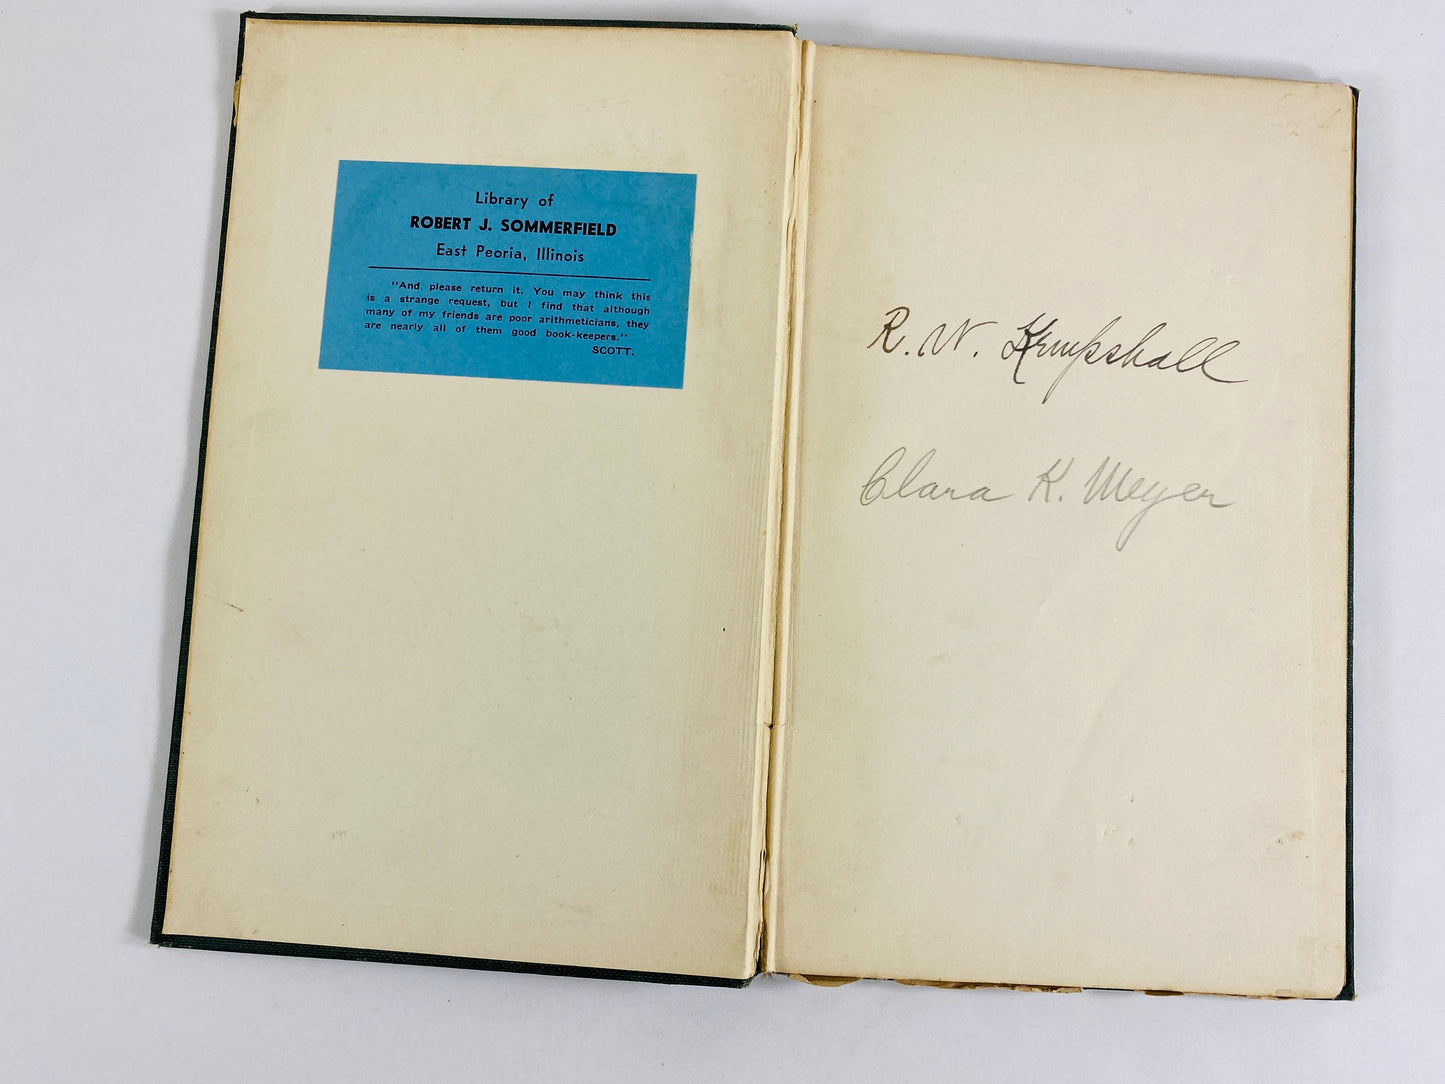 Library of
ROBERT J. SOMMERFIELD
East Peoria, Illinois
"And please return it. You may think this
is a strange request, but I find that although
many of my friends are poor arithmeticians, they
are nearly all of them good book-keepers."
SCOTT.
R. W. Krumpshall
Clara K. Meyer